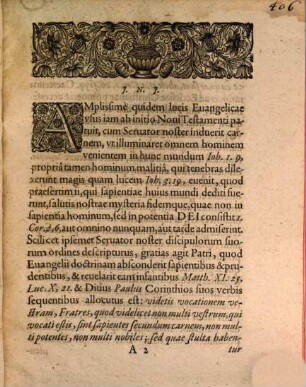 406
I. N. I.
AMplissimè quidem lucis Evangelicæ
usus iam ab initio Novi Testamenti pa-
tuit, cum Servator noster induerit car-
nem, ut illuminaret omnem hominem
venientem in hunc mundum Joh. 1. 9.
propriâ tamen hominum malitiâ, qui tenebras dile-
xerunt magis quam lucem Joh. 3. 19, evenit, quod
præsertim ii, qui sapientiæ huius mundi dediti sue-
runt, salutis nostræ mysteria fidemque, quæ non in
sapientia hominum, sed in potentia DEI consistit 1.
Cor. 2. 6, aut omnino nunquam, aut tarde admiserint.
Scilicet ipsemet Servator noster discipulorum suo-
rum ordines descripturus, gratias agit Patri, quod
Evangelii doctrinam absconderit sapientibus &
prudentibus, & revelarit eam infantibus Matth. XI. 25.
Luc. X. 21. & Divus Paulus Corinthios suos verbis
sequentibus allocutus est: videtis vocationem ve-
stram, Fratres, quod videlicet non multi vestrum, qui
vocati estis, sint sapientes secundum carnem, non mul-
ti potentes, non multi nobiles; sed quæ stulta haben-
A 2 tur